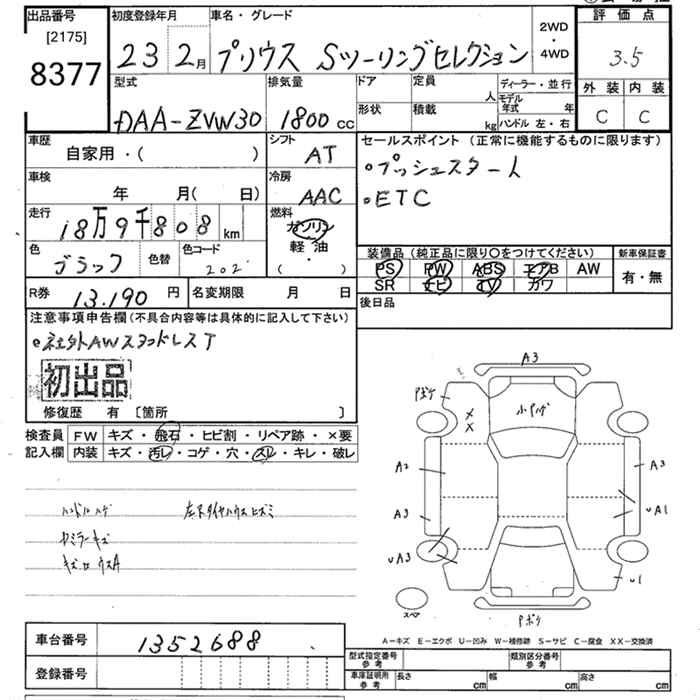 出品番号
[2175]
8377
初度登録年月
23 2月
車名・グレード
プリウス Sツーリングセレクション
2WD
・
4WD
評価点
3.5
外装 内装
C C
型式
DAA-ZVW30
排気量
1800 cc
ドア
形状
定員
人
積載
kg
ディーラー・並行
モデル
年式 年
ハンドル 左・右
車歴
自家用・( )
シフト
AT
セールスポイント (正常に機能するものに限ります)
・プッシュスタート
・ETC
車検
年 月( 日)
冷房
AAC
走行
18万9千808 km
燃料
ガソリン
軽油
( ・ )
色
ブラック
色替
色コード
202
装備品 (純正品に限り〇をつけてください)
PS PW ABS エアB AW
SR ナビ TV カワ
新車保証書
有・無
R券 13.190 円
名変期限 月 日
後日品
注意事項申告欄 (不具合内容等は具体的に記入して下さい)
・社外AWスタッドレスT
初出品
修復歴 有 〔箇所 〕
検査員
記入欄
FW キズ・飛石・ヒビ割・リペア跡・×要
内装 キズ・汚レ・コゲ・穴・スレ・キレ・破レ
ハンドルハゲ 左下タイヤハウスヒズミ
カミラーキズ
A3
小ハゲ
A2
A3
A3
UA1
UA3
U1
スペア
Pボケ
車台番号 1352688
登録番号
A―キズ E―エクボ U―凹み W―補修跡 S―サビ C―腐食 XX―交換済
型式指定番号
参考
類別区分番号
参考
車庫証明用
参考
長さ cm 幅 cm 高さ cm